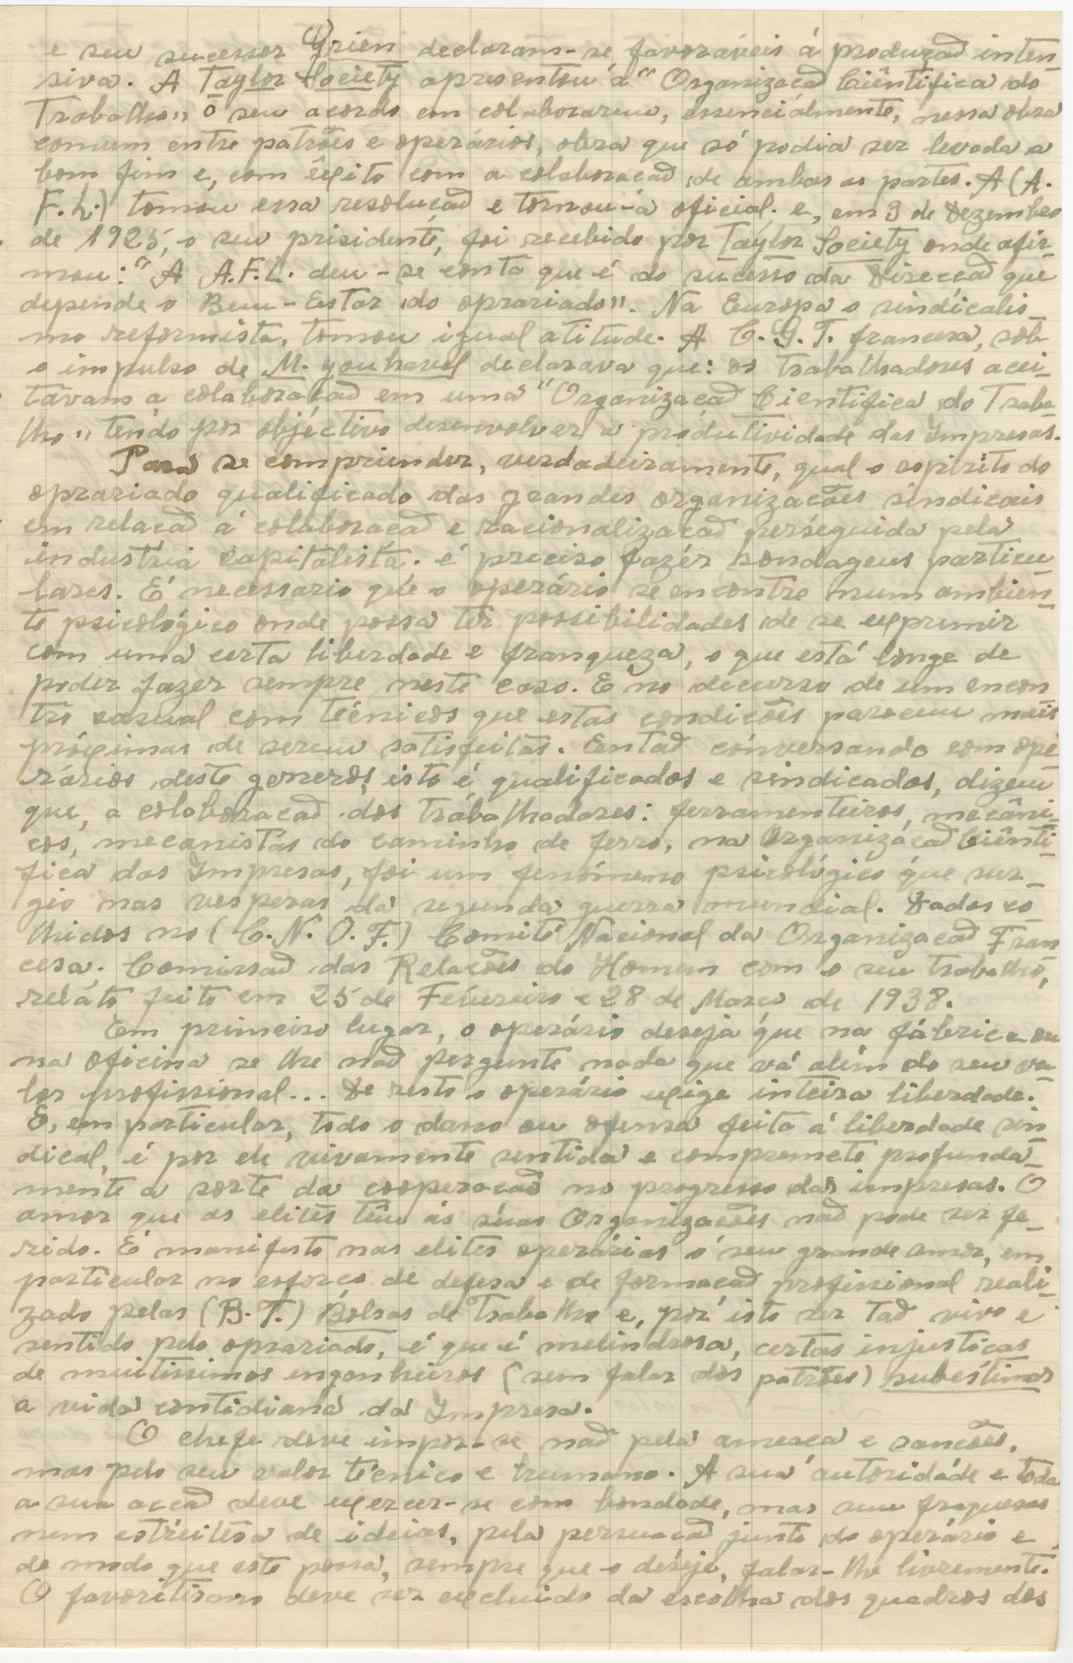 e seu sucessor Grien declaram-se favoráveis á produçaõ inten
siva. A Taylor Society apresentou á "Organizaçaõ Ciêntifica do
Trabalho" o seu acordo em colaborarem, essencialmente, nessa obra
comum entre patrões e operários, obra que só podia ser levada a
bom fim e, com êxito com a colaboraçaõ de ambas as partes. A (A.
F. L.) tomou essa resoluçaõ e tornou-a oficial. e, em 3 de Dezembro
de 1925, o seu prisidente, foi recebido por Taylor Society onde afir
mou: "A A.F.L. deu-se conta que é do sucesso da Direcçaõ que
depende o Bem-Estar do oprariado". Na Europa o sindicalis_
mo reformista, tomou igual atitude. A C. G. T. francesa, sob
o impulso de M. youhavel declarava que: os trabalhadores acei_
tavam a colaboraçaõ em uma "Organizaçaõ Cientifica do Traba
lho" tendo por objectivo desenvolver a produtividade das Impresas.
Para se compriender, verdadeiramente, qual o espirito do
oprariado qualificado das grandes organizacões sindicais
em relaçaõ á colaboraçaõ e racionalizaçaõ perseguida pela
industria capitalista. é preciso fazêr sondagens particu
lares. É necessario que o operário se encontre num ambien_
te psicológico onde possa ter possibilidades de se exprimir
com uma certa liberdade e franqueza, o que está longe de
poder fazer sempre neste caso. E no decurso de um encon
tro casual com técnicos que estas condicões parecem mais
próximas de serem satisfeitas. Entaõ conversando com ope
rários deste generos, isto é, qualificados e sindicados, dizem
que, a colaboraçaõ dos trabalhadores: ferramenteiros, mecâni_
cos, mecanistas do caminho de ferro, na Organizaçaõ Ciênti_
fica das Impresas, foi um fenómeno psicológico que sur_
gio nas vesperas da segunda guerra mundial. Dados co
lhidos no (C. N. O. F.) Comité Nacional da Organizaçaõ Fran
cesa. Comissaõ das Relações do Homem com o seu trabalho,
reláto feito em 25 de Fevereiro e 28 de Março de 1938.
Em primeiro lugar, o operário deseja que na fábrica ou
na oficina se lhe naõ pergunte nada que vá além do seu va_
lor profissional... De resto o operário exige inteira liberdade.
E, em particular, todo o dano ou ofensa feita á liberdade sin
dical, é por ele vivamente sentida e compromete profunda_
mente a sorte da cooperaçaõ no progresso das impresas. O
amor que as elites têm ás suas Organizacões naõ pode ser fe_
rido. É manifesto nas elites operárias o seu grande amor, em
particular no esforço de defesa e de formaçaõ profissional reali_
zado pelas (B. T.) Bolsas de Trabalho e, por isto ser taõ vivo e
sentido pelo oprariado, é que é melindrosa, certas injustiças
de muitissimos engenheiros (sem falar dos patrões) subestimar
a vida contidiana da Impresa.
O chefe deve impor-se naõ pela ameaça e sancões,
mas pelo seu valor técnico e humano. A sua autoridáde e toda
a sua acçaõ deve exercer-se com bondade, mas sem fraquesas
nem estreitesa de ideias, pela persuaçaõ junto do operário e
de modo que este possa, sempre que o deseje, falar-lhe livremente.
O favoritismo deve ser excluido da escolha dos quadros dos